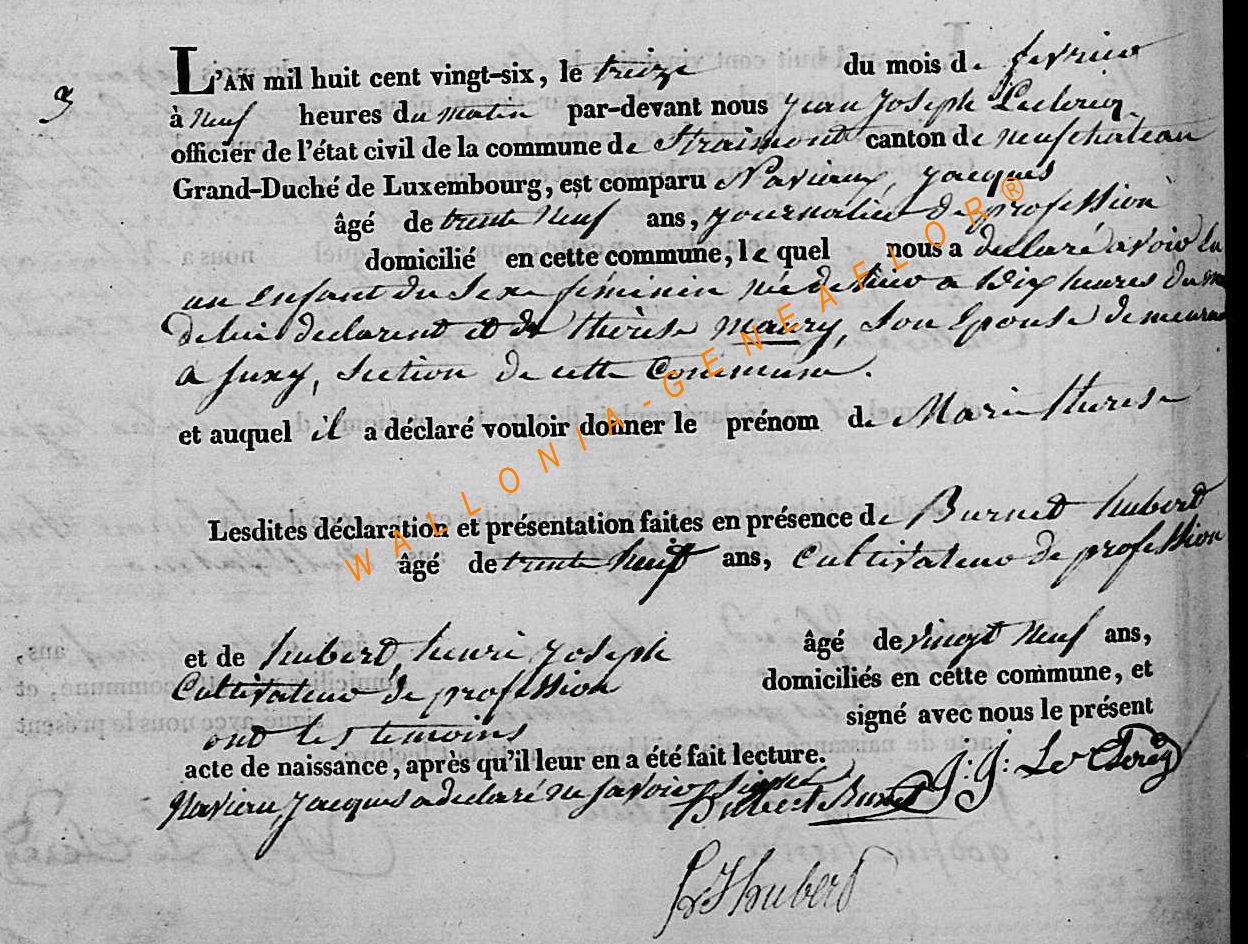 3
L'AN mil huit cent vingt-six, le treize du mois de fevrier
à neuf heures du matin par-devant nous Jean Joseph Leclercq
officier de l'état civil de la commune de Straimont canton de neufchateau
Grand-Duché de Luxembourg, est comparu Navieux, Jacques
âgé de trente neuf ans, journalier de profession
domicilié en cette commune, le quel nous a declaré avoir eu
un enfant du sexe féminin né de hier a Dix heures du
de lui declarent et de thérèse maury, son Epouse
a Suxy, section de cette Commune.
et auquel il a déclaré vouloir donner le prénom de Marie therese
Lesdites déclaration et présentation faites en présence de Burnet hubert
âgé de trente neuf ans, Cultivateur de profession
et de hubert, henri Joseph âgé de vingt neuf ans,
Cultivateur de profession domiciliés en cette commune, et
ont les temoins signé avec nous le présent
acte de naissance, après qu'il leur en a été fait lecture.
Navieux Jacques a declaré ne savoir signer
Hubert Burnet J: J: Le Clercq
hJ hubert
WALLONIA-GENEAFLOR®